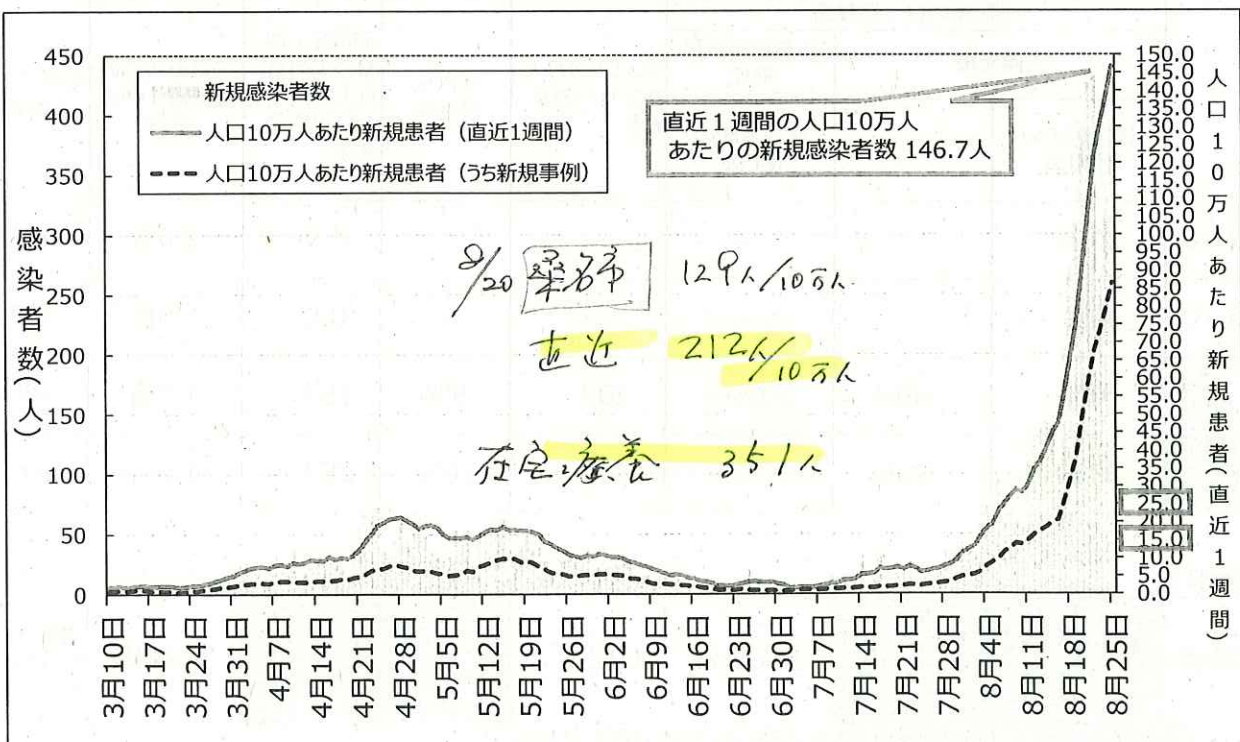 450
400
350
300
250
200
150
100
50
0
感染者数(人)
新規感染者数
人口10万人あたり新規患者（直近1週間）
人口10万人あたり新規患者（うち新規事例）
直近１週間の人口10万人
あたりの新規感染者数 146.7人
8/20 桑名市 129人/10万人
直近 212人/10万人
在宅療養 351人
150.0
145.0
140.0
135.0
130.0
125.0
120.0
115.0
110.0
105.0
100.0
95.0
90.0
85.0
80.0
75.0
70.0
65.0
60.0
55.0
50.0
45.0
40.0
35.0
30.0
25.0
20.0
15.0
10.0
5.0
0.0
人口１０万人あたり新規患者（直近１週間）
3月10日
3月17日
3月24日
3月31日
4月7日
4月14日
4月21日
4月28日
5月5日
5月12日
5月19日
5月26日
6月2日
6月9日
6月16日
6月23日
6月30日
7月7日
7月14日
7月21日
7月28日
8月4日
8月11日
8月18日
8月25日